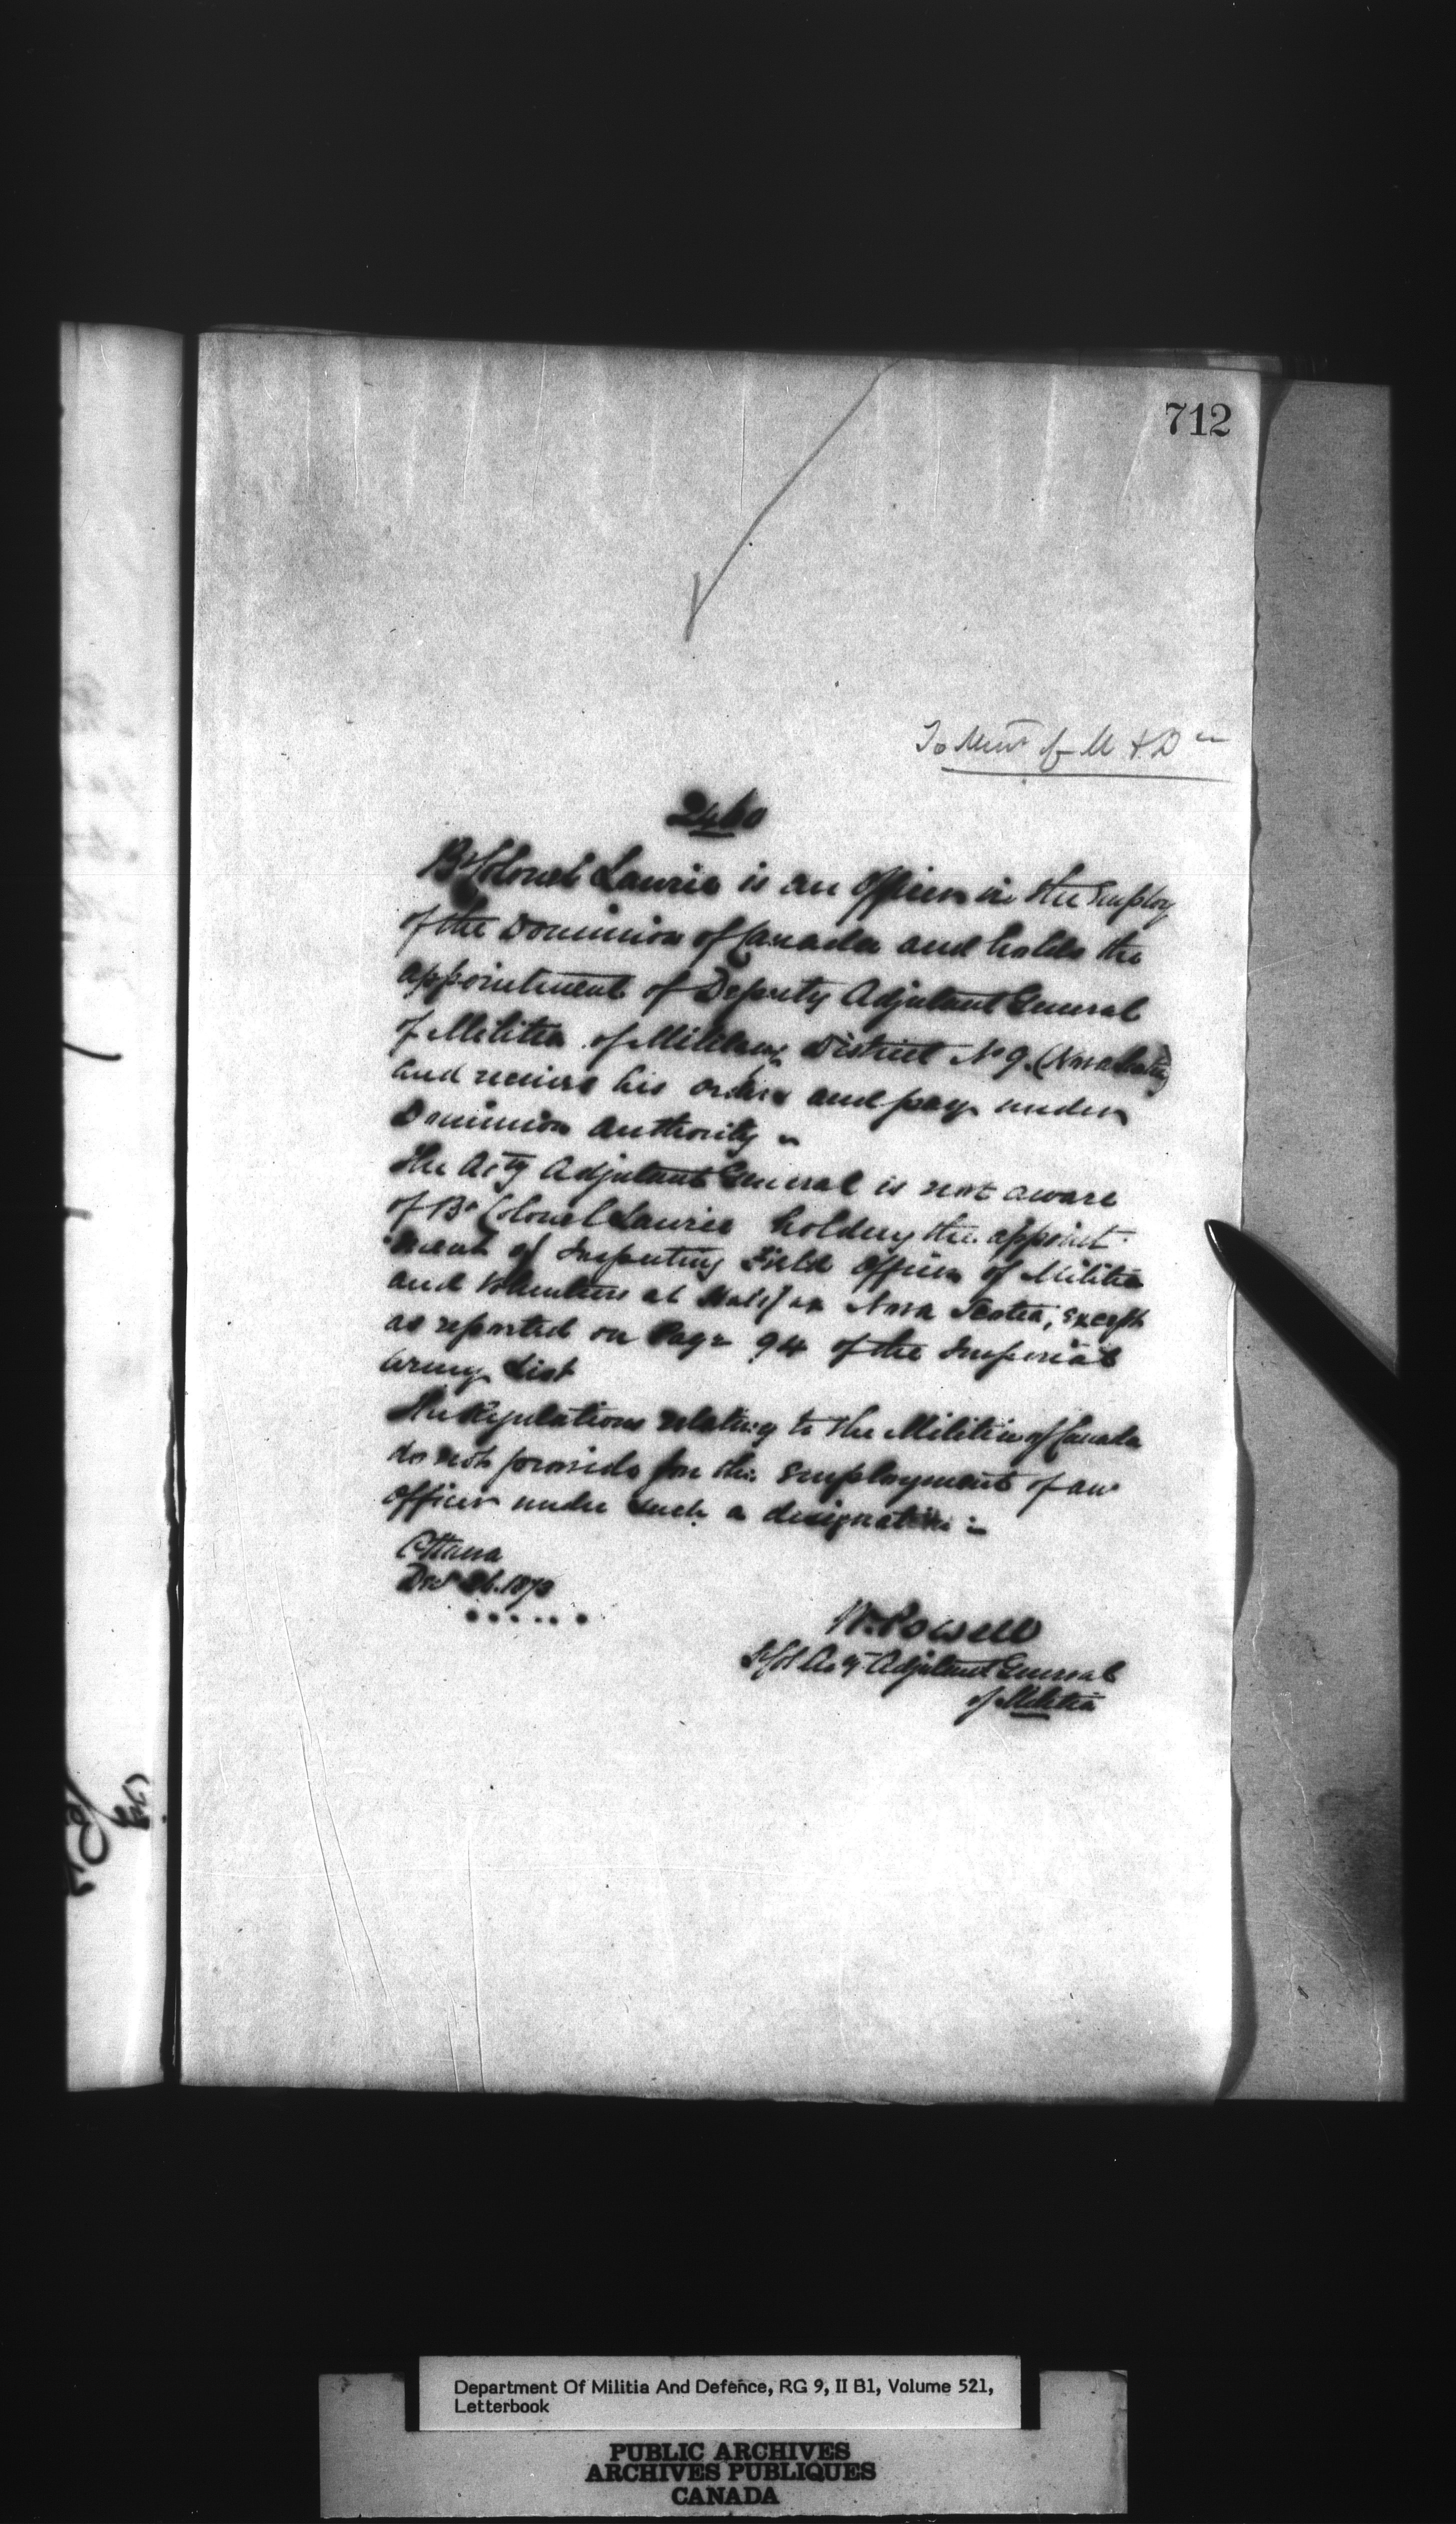 712
To Minr of M & D
2460
Bt Colonel Laurie is an Officer in the Employ
of the Dominion of Canada and holds the
appointment of Deputy Adjutant General
of Militia of Military District No 9. (Nova Scotia)
and receives his orders and pay under
Dominion Authority
The Actg Adjutant General is not aware
of Bt Colonel Laurie holding the appoint
ment of Inspecting Field Officer of Militia
and Volunteers at Halifax Nova Scotia, except
as reported on Page 94 of the Imperial
Army List
The Regulations relating to the Militia of Canada
do not provide for the Employment of an
Officer under such a designation
Ottawa
Decr 26. 1873
W. Powell
Actg Adjutant General
of Militia
Department Of Militia And Defence, RG 9, II B1, Volume 521,
Letterbook
PUBLIC ARCHIVES
ARCHIVES PUBLIQUES
CANADA